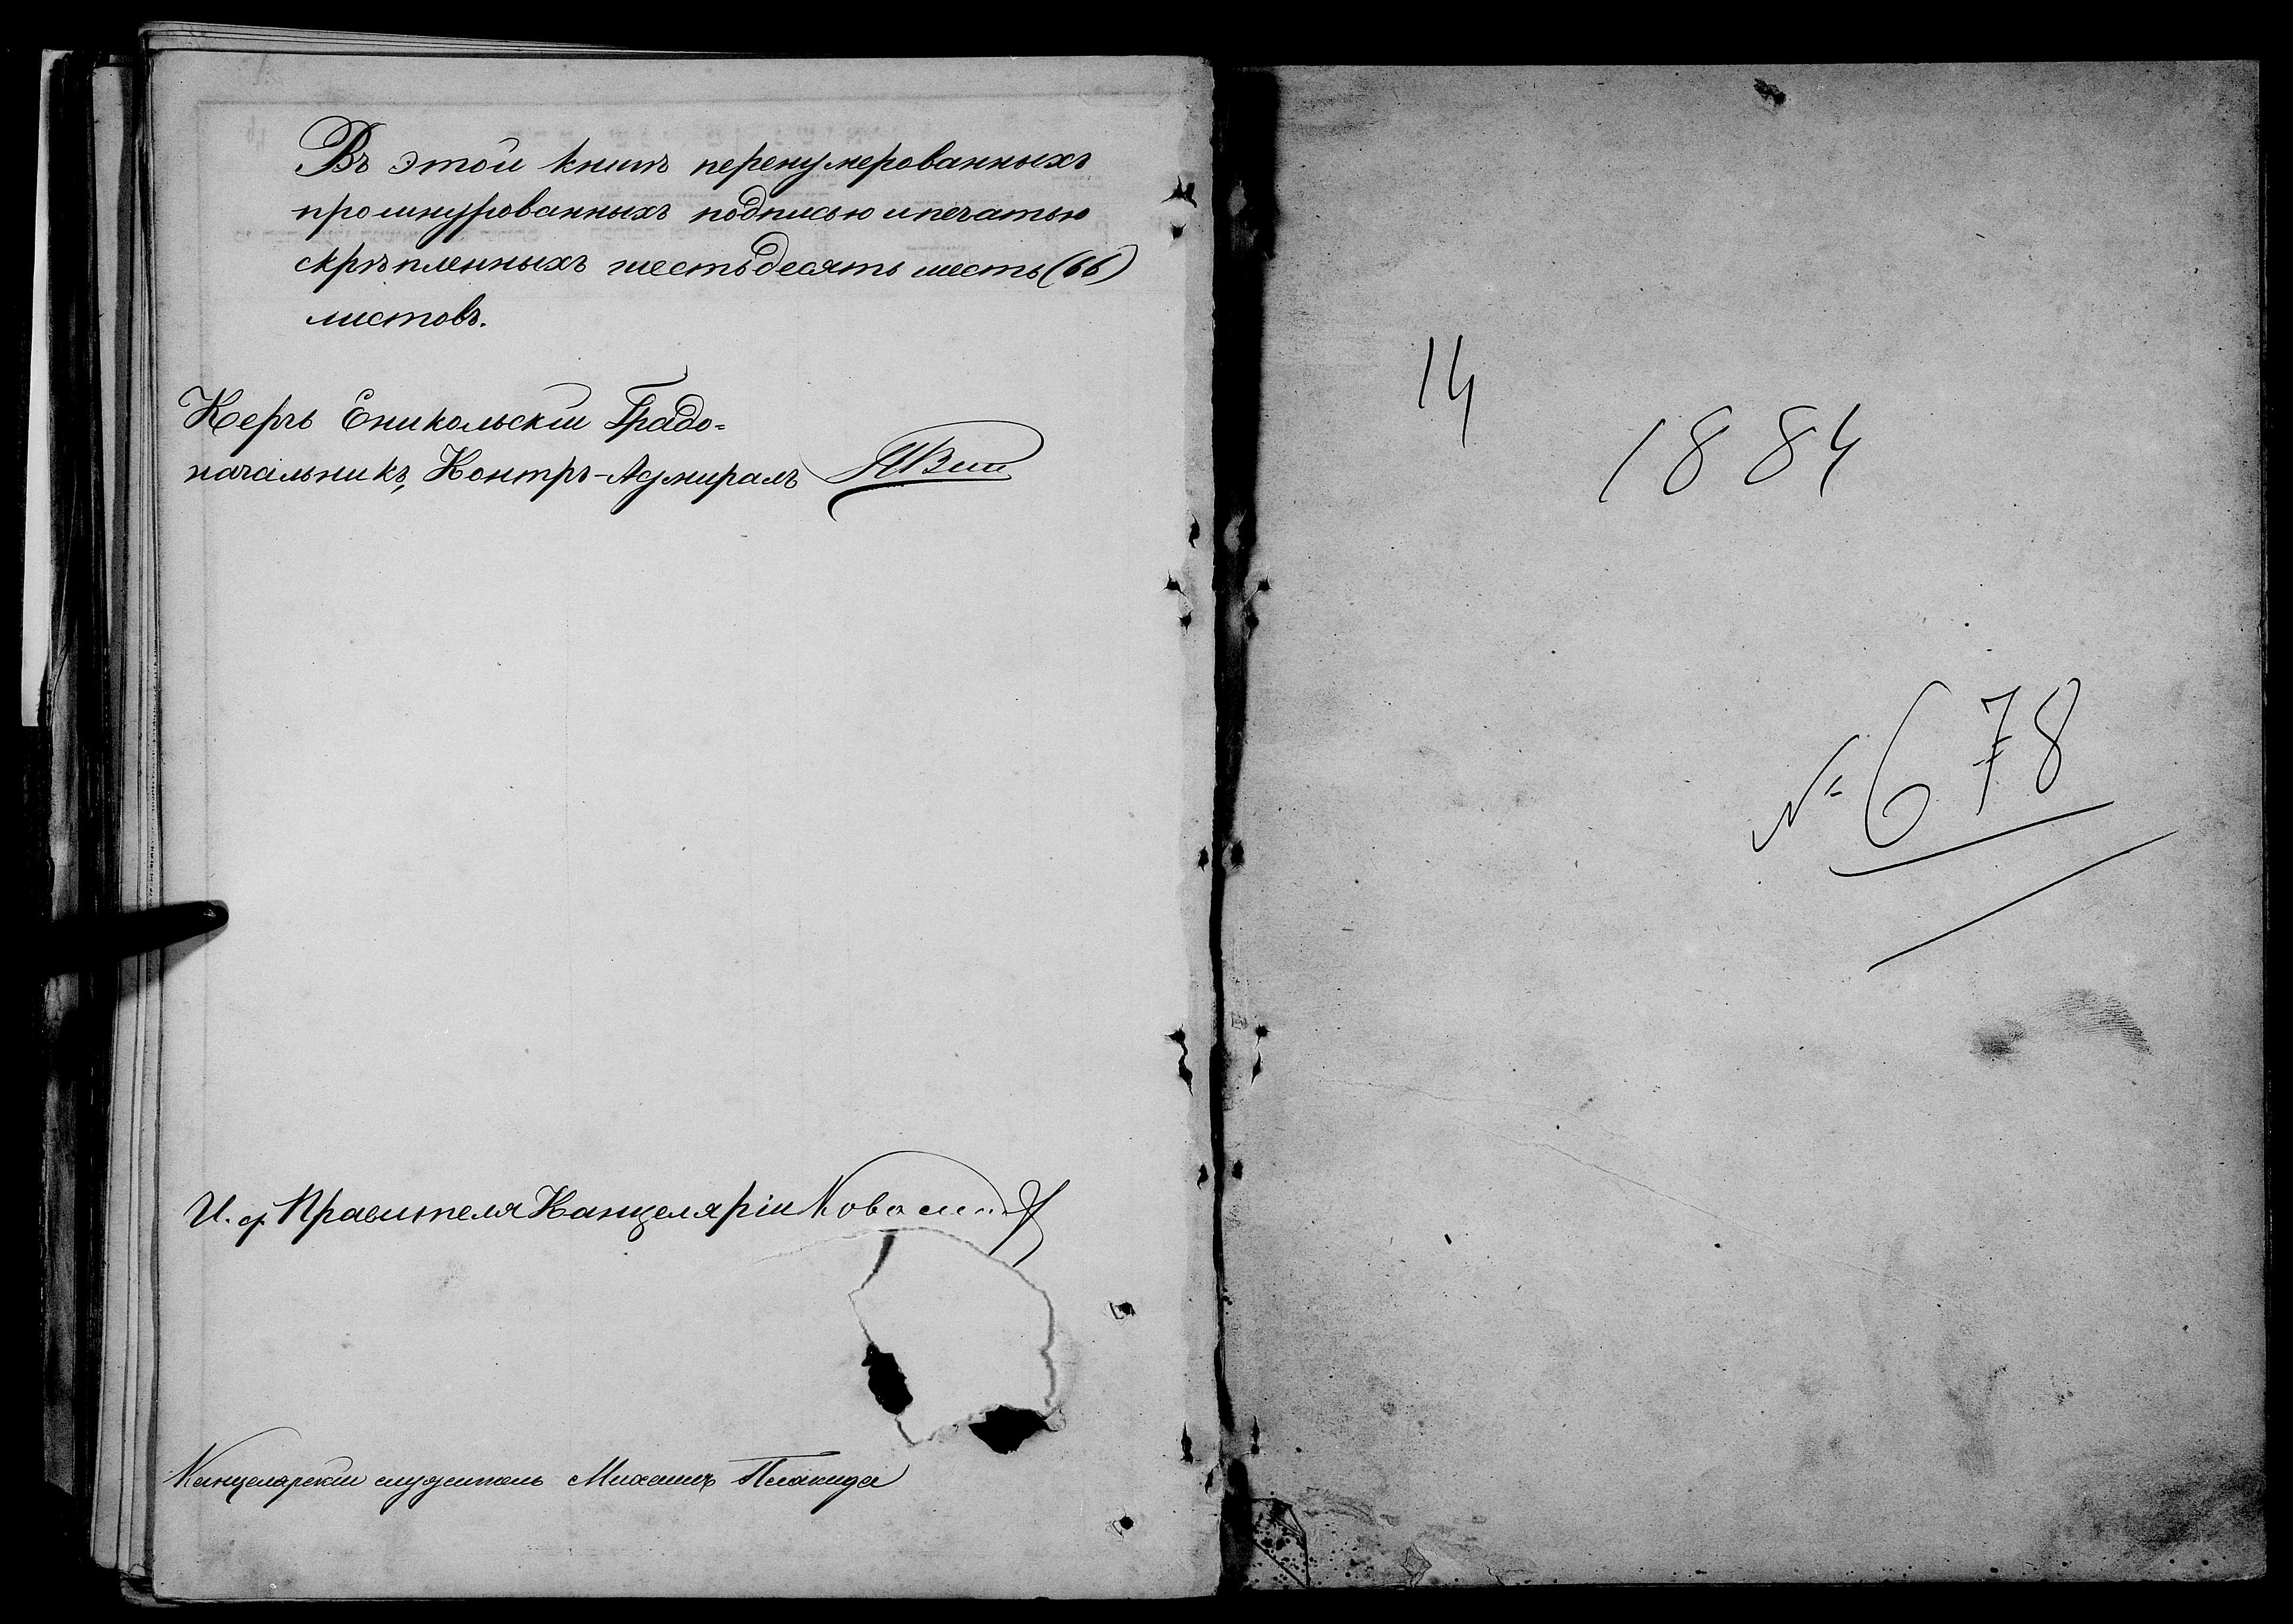 Въ этой книгѣ перенумерованныхъ
прошнурованныхъ подписью и печатью
скрѣпленныхъ шестьдесятъ шесть (66)
листовъ.
Керчь Еникольскій Градо=
начальникъ, Контръ-Адмиралъ
И. д. Правителя Канцеляріи
Канцелярскій служитель Михаилъ Плакида
14
1884
№ 678